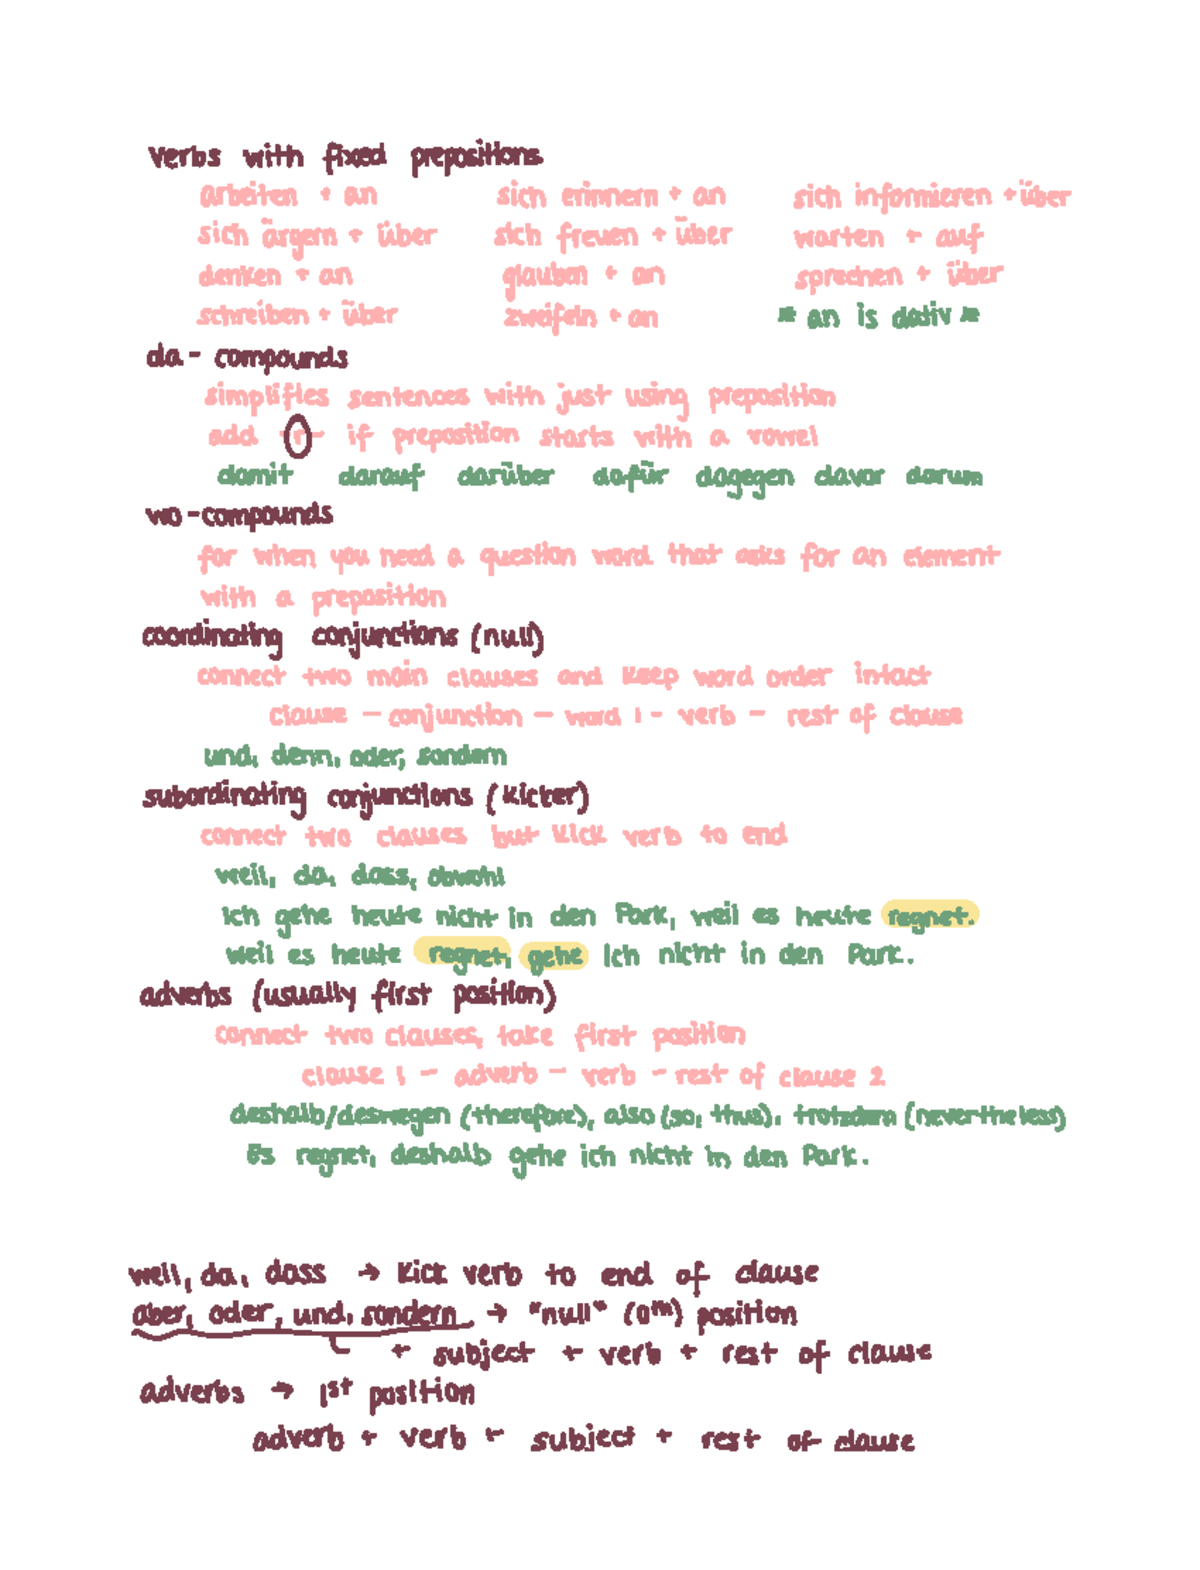 verbs with fixed prepositions
arbeiten + an sich erinnern + an sich informieren + über
sich ärgern + über sich freuen + über warten + auf
denken + an glauben + an sprechen + über
schreiben + über zweifeln + an * an is dativ *
da - compounds
simplifies sentences with just using preposition
add -r- if preposition starts with a vowel
damit darauf darüber dafür dagegen davor darum
wo - compounds
for when you need a question word that asks for an element
with a preposition
coordinating conjunctions (null)
connect two main clauses and keep word order intact
clause - conjunction - word 1 - verb - rest of clause
und, denn, oder, sondern
subordinating conjunctions (kicker)
connect two clauses but kick verb to end
weil, da, dass, obwohl
ich gehe heute nicht in den Park, weil es heute regnet.
weil es heute regnet, gehe ich nicht in den Park.
adverbs (usually first position)
connect two clauses, take first position
clause 1 - adverb - verb - rest of clause 2
deshalb/deswegen (therefore), also (so, thus), trotzdem (nevertheless)
Es regnet, deshalb gehe ich nicht in den Park.
weil, da, dass → kick verb to end of clause
aber, oder, und, sondern → "null" (0th) position
+ subject + verb + rest of clause
adverbs → 1st position
adverb + verb + subject + rest of clause